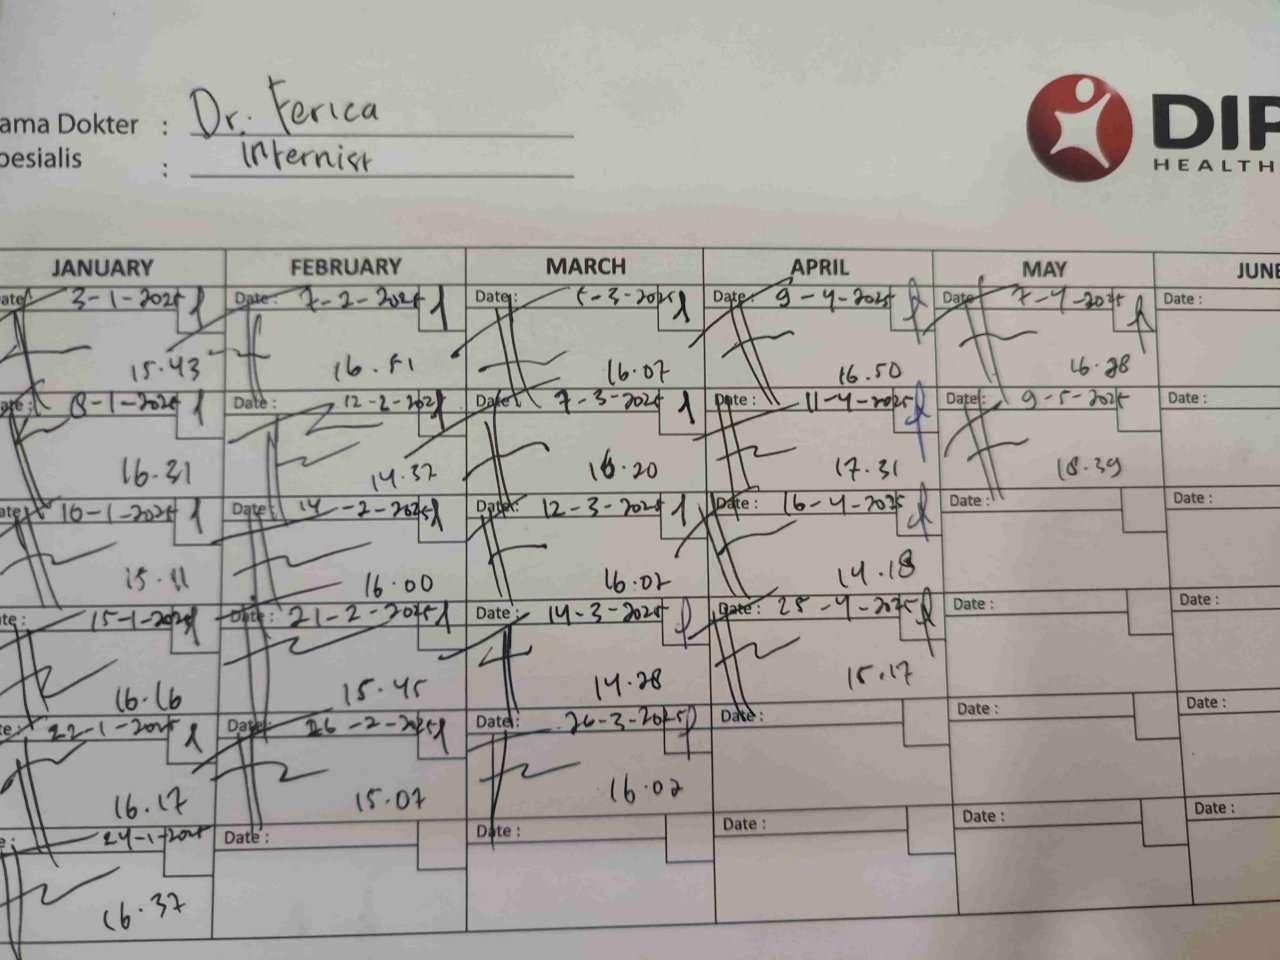 ama Dokter : Dr. Ferica
pesialis : Internist
DIP
HEALTH
JANUARY FEBRUARY MARCH APRIL MAY JUNE
ate: 3-1-2025 Date: 7-2-2025 Date: 5-3-2025 Date: 9-4-2025 Date: 7-4-2025 Date :
15.43 16.51 16.07 16.50 16.28
ate: 8-1-2025 Date: 12-2-2025 Date: 7-3-2025 Date: 11-4-2025 Date: 9-5-2025 Date :
16.31 14.37 16.20 17.31 18.39
ate: 10-1-2025 Date: 14-2-2025 Date: 12-3-2025 Date : 16-4-2025 Date : Date :
15.11 16.00 16.02 14.18
te: 15-1-2025 Date: 21-2-2025 Date: 14-3-2025 Date: 25-4-2025 Date : Date :
16.16 15.45 14.28 15.17
e: 22-1-2025 Date: 26-2-2025 Date: 26-3-2025 Date : Date : Date :
16.17 15.07 16.02
e: 24-1-2025 Date : Date : Date : Date : Date :
16.37